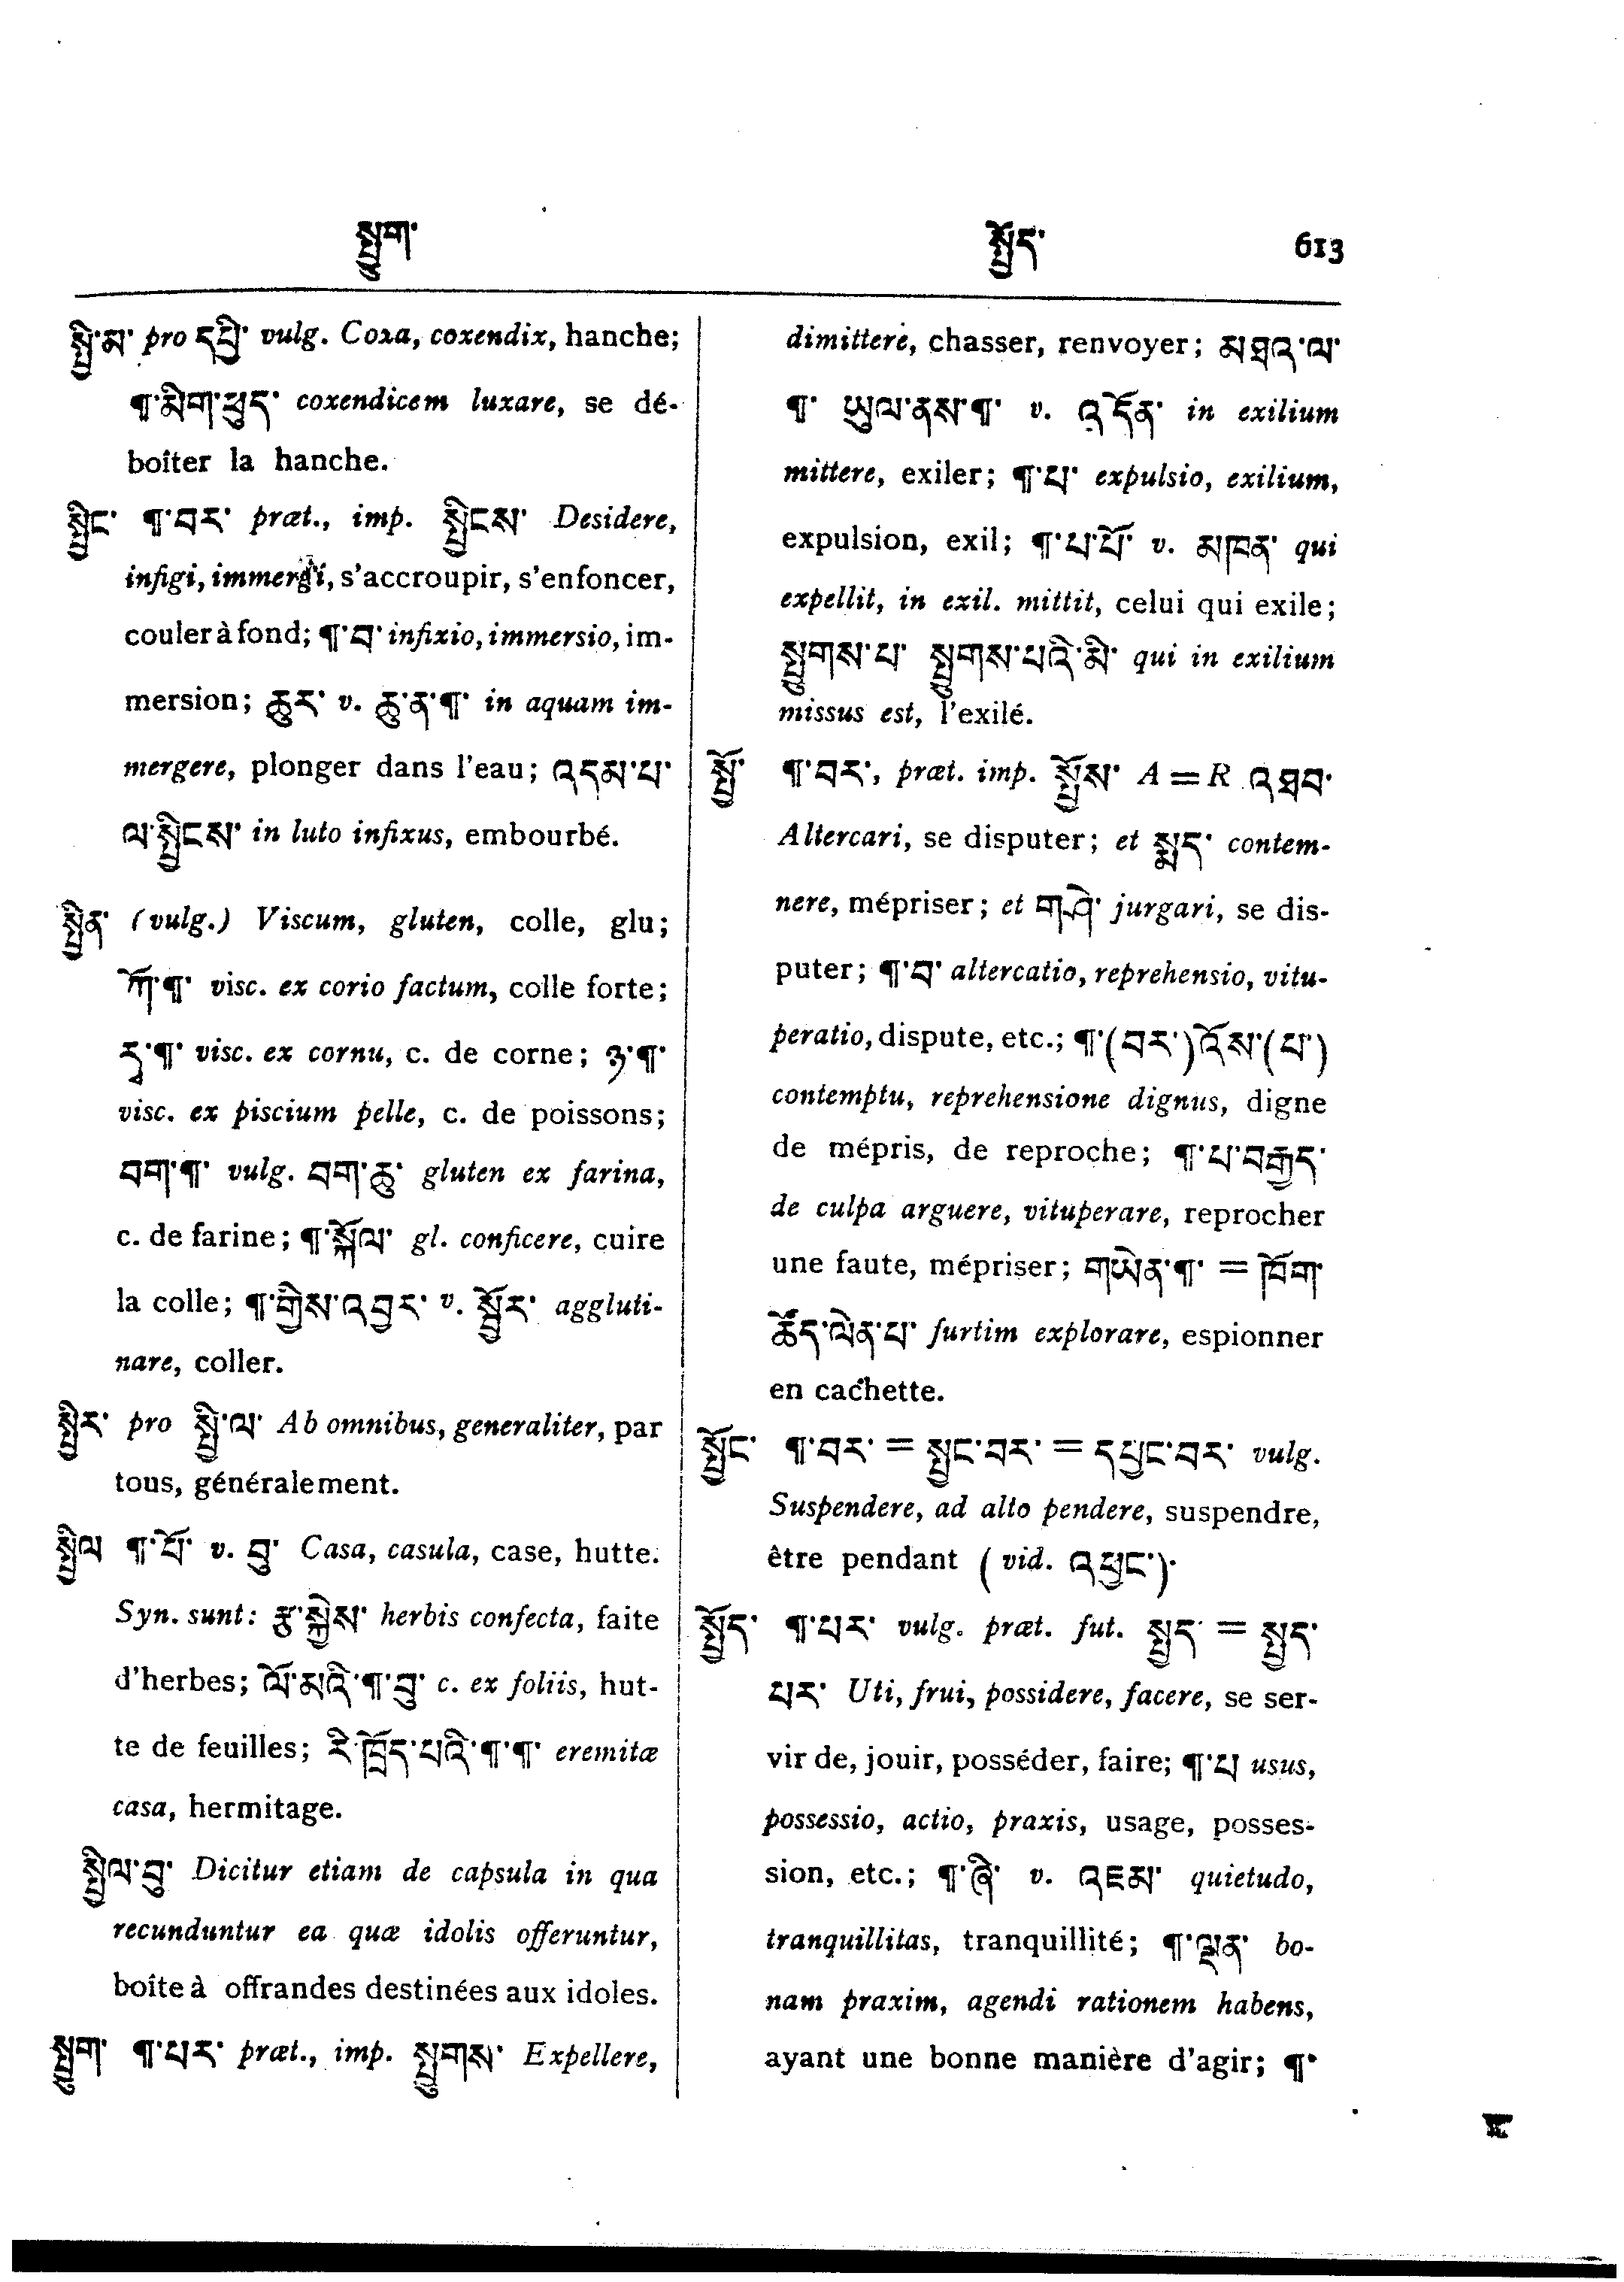 སྤྱུག་
སྤྱོད་ 613
སྤྱི་མ་ pro དཔྱི་ vulg. Coxa, coxendix, hanche;
¶་མིག་ཕུད་ coxendicem luxare, se dé-
boîter la hanche.
སྤྱིང་ ¶་བར་ præt., imp. སྤྱིངས་ Desidere,
infigi, immergi, s'accroupir, s'enfoncer,
couler à fond; ¶་བ་ infixio, immersio, im-
mersion; ཆུར་ v. ཆུ་ན་¶་ in aquam im-
mergere, plonger dans l'eau; འདམ་པ་
ལ་སྤྱིངས་ in luto infixus, embourbé.
སྤྱིན་ (vulg.) Viscum, gluten, colle, glu;
ཀོ་¶་ visc. ex corio factum, colle forte;
རྭ་¶་ visc. ex cornu, c. de corne; ཉ་¶་
visc. ex piscium pelle, c. de poissons;
བག་¶་ vulg. བག་ཆུ་ gluten ex farina,
c. de farine; ¶་སྐོལ་ gl. conficere, cuire
la colle; ¶་གྱིས་འབྱར་ v. སྦྱོར་ aggluti-
nare, coller.
སྤྱིར་ pro སྤྱི་ལ་ Ab omnibus, generaliter, par
tous, généralement.
སྤྱིལ ¶་པོ་ v. བུ་ Casa, casula, case, hutte.
Syn. sunt: རྩྭ་སྐྱེས་ herbis confecta, faite
d'herbes; ལོ་མའི་¶་བུ་ c. ex foliis, hut-
te de feuilles; རི་ཁྲོད་པའི་¶་¶་ eremitæ
casa, hermitage.
སྤྱིལ་བུ་ Dicitur etiam de capsula in qua
recunduntur ea quæ idolis offeruntur,
boîte à offrandes destinées aux idoles.
སྤྱུག་ ¶་པར་ præt., imp. སྤྱུགས་ Expellere,
dimittere, chasser, renvoyer; མཐའ་ལ་
¶་ ཡུལ་ནས་¶་ v. འདོན་ in exilium
mittere, exiler; ¶་པ་ expulsio, exilium,
expulsion, exil; ¶་པ་པོ་ v. མཁན་ qui
expellit, in exil. mittit, celui qui exile;
སྤྱུགས་པ་ སྤྱུགས་པའི་མི་ qui in exilium
missus est, l'exilé.
སྤྱོ་ ¶་བར་, præt. imp. སྤྱོས་ A = R འཐབ་
Altercari, se disputer; et སྨད་ contem-
nere, mépriser; et གཤེ་ jurgari, se dis-
puter; ¶་བ་ altercatio, reprehensio, vitu-
peratio, dispute, etc.; ¶་(བར་)འོས་(པ་)
contemptu, reprehensione dignus, digne
de mépris, de reproche; ¶་པ་བརྒྱད་
de culpa arguere, vituperare, reprocher
une faute, mépriser; གཡེན་¶་ = ཁོག་
ཚོད་ལེན་པ་ furtim explorare, espionner
en cachette.
སྤྱོང་ ¶་བར་ = སྤྱང་བར་ = དཔྱང་བར་ vulg.
Suspendere, ad alto pendere, suspendre,
être pendant (vid. འཕྱང་).
སྤྱོད་ ¶་པར་ vulg. præt. fut. སྤྱད་ = སྤྱད་
པར་ Uti, frui, possidere, facere, se ser-
vir de, jouir, posséder, faire; ¶་པ usus,
possessio, actio, praxis, usage, posses-
sion, etc.; ¶་ཞི་ v. འཇམ་ quietudo,
tranquillitas, tranquillité; ¶་ལྡན་ bo-
nam praxim, agendi rationem habens,
ayant une bonne manière d'agir; ¶་